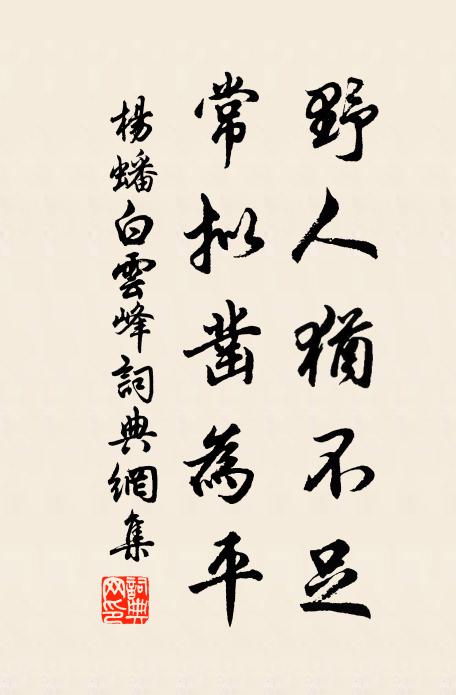 野人猶不足
常拟凿為平
楊蟠白雲峰詞典網集
詞典网印